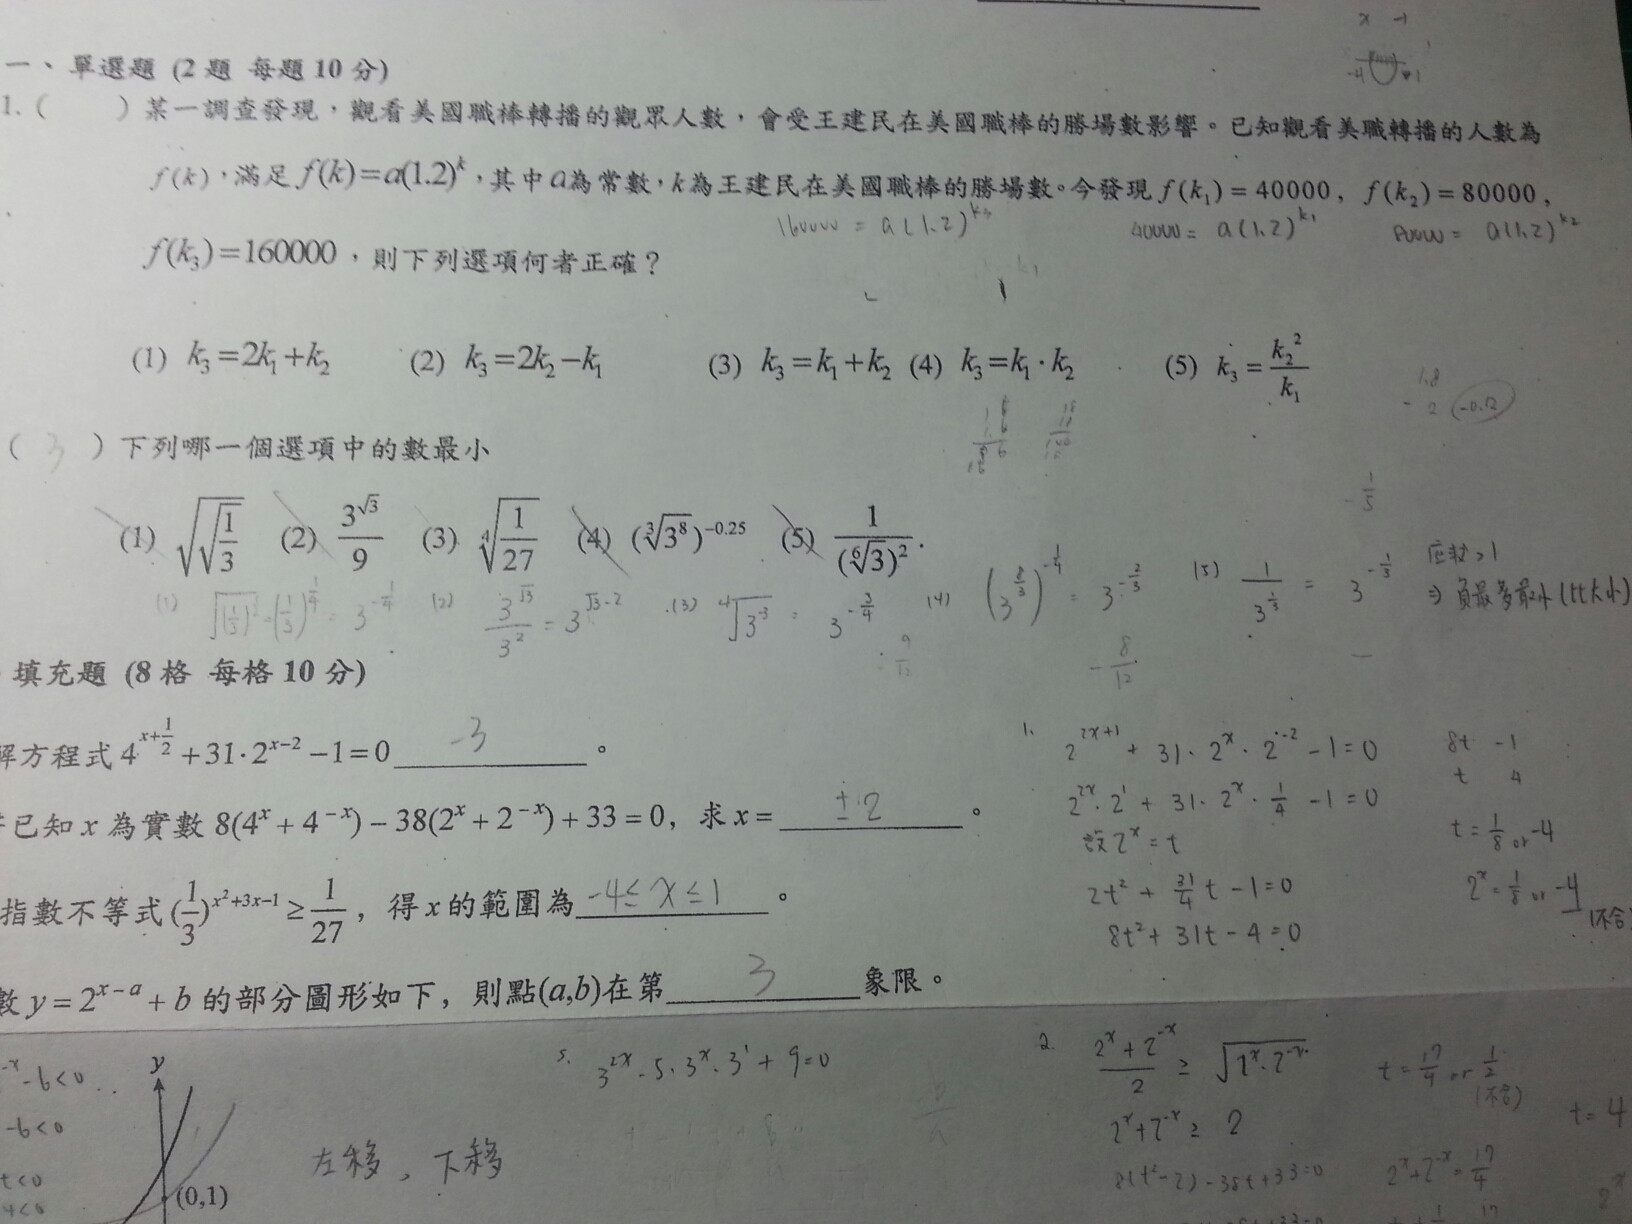 一、單選題 (2 題 每題 10 分)
1. (    ) 某一調查發現，觀看美國職棒轉播的觀眾人數，會受王建民在美國職棒的勝場數影響。已知觀看美職轉播的人數為
f(k)，滿足 f(k)=a(1.2)^k，其中 a為常數，k為王建民在美國職棒的勝場數。今發現 f(k₁) = 40000，f(k₂) = 80000，
160000 = a(1.2)^k₃ 40000 = a(1.2)^k₁ 80000 = a(1.2)^k₂
f(k₃)=160000，則下列選項何者正確？
(1) k₃=2k₁+k₂ (2) k₃=2k₂−k₁ (3) k₃=k₁+k₂ (4) k₃=k₁·k₂ (5) k₃=k₂²/k₁
( 3 ) 下列哪一個選項中的數最小
(1) √√(1/3) (2) 3^√3/9 (3) ⁴√(1/27) (4) (³√3⁸)^−0.25 (5) 1/(⁶√3)².
(1) √(1/3)^½=(1/3)^¼ = 3^-¼ (2) 3^√3/3² = 3^(√3-2) (3) ⁴√3⁻³ = 3^-¾ (4) (3^(8/3))^-¼ = 3^-⅔ (5) 1/3^⅓ = 3^-⅓
底數>1
⇒ 負最多最小 (比大小)
-8/12
填充題 (8 格 每格 10 分)
解方程式 4^(x+½)+31·2^(x−2)−1=0 -3 。
已知 x 為實數 8(4^x + 4^−x) − 38(2^x + 2^−x) + 33 = 0，求 x = ±2 。
指數不等式 (1/3)^(x²+3x−1) ≥ 1/27，得 x 的範圍為 -4≤x≤1 。
數 y = 2^(x−a) + b 的部分圖形如下，則點(a,b)在第 3 象限。
1. 2^(2x+1) + 31·2^x·2^-2 −1=0
2^2x·2^1 + 31·2^x·¼ −1=0
設 2^x = t
2t² + 31/4 t −1=0
8t² + 31t − 4 = 0
8t -1
t 4
t = ⅛ or -4
2^x = ⅛ or -4 (不合)
-6<0
-6<0
t<0
y
(0,1)
左移，下移
5. 3^2x - 5·3^x·3^1 + 9 = 0
2. (2^x+2^-x)/2 ≥ √(2^x·2^-x)
2^x+2^-x ≥ 2
8(t²-2)-38t+33=0
t = 17/4 or ½ (不合)
2^x+2^-x = 17/4
t = 4